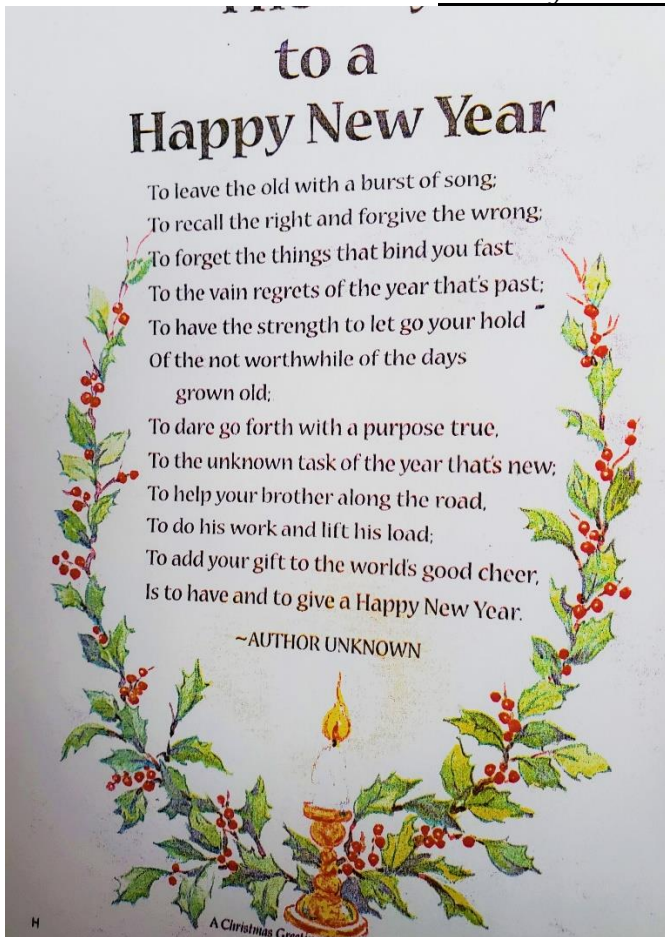 to a
Happy New Year
To leave the old with a burst of song;
To recall the right and forgive the wrong;
To forget the things that bind you fast
To the vain regrets of the year that's past;
To have the strength to let go your hold
Of the not worthwhile of the days
grown old;
To dare go forth with a purpose true,
To the unknown task of the year that's new;
To help your brother along the road,
To do his work and lift his load;
To add your gift to the world's good cheer,
Is to have and to give a Happy New Year.
~AUTHOR UNKNOWN
H
A Christmas